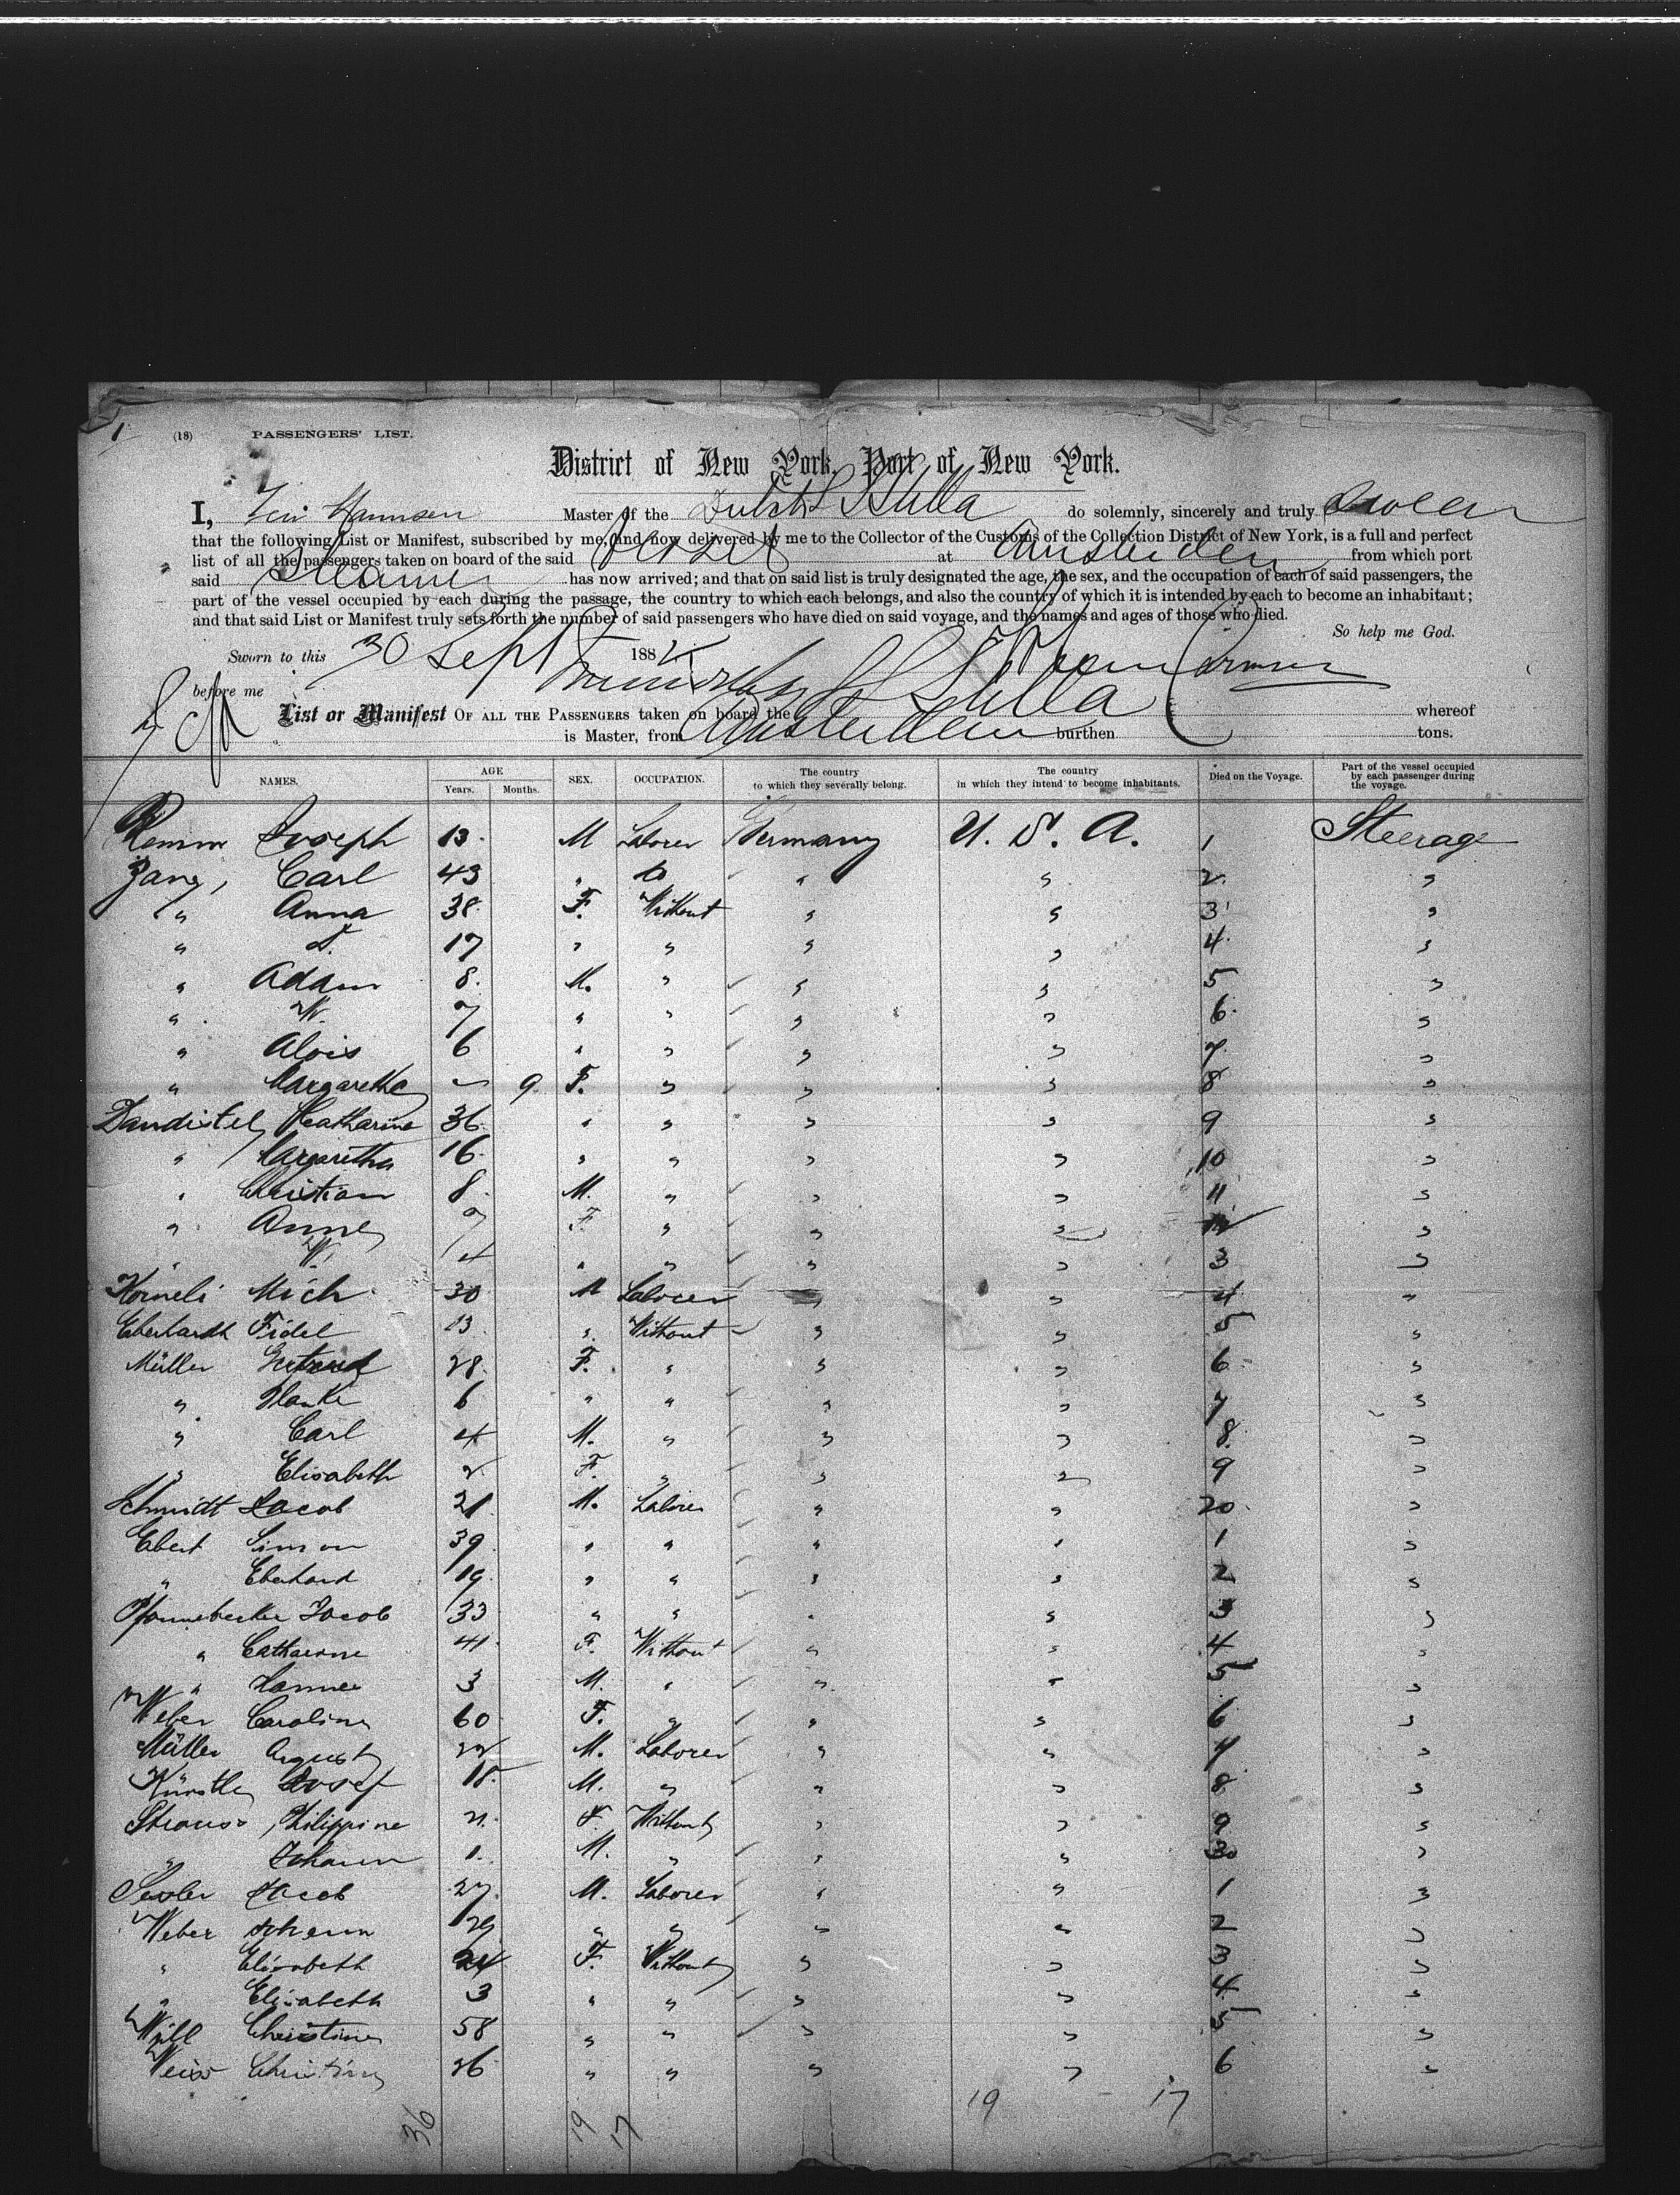 1
(18) PASSENGERS' LIST.
District of New York, Port of New York.
I, Hannsen Master of the Dutch S S Stella do solemnly, sincerely and truly swear
that the following List or Manifest, subscribed by me, and now delivered by me to the Collector of the Customs of the Collection District of New York, is a full and perfect
list of all the passengers taken on board of the said vessel at Amsterdam from which port
said Steamer has now arrived; and that on said list is truly designated the age, the sex, and the occupation of each of said passengers, the
part of the vessel occupied by each during the passage, the country to which each belongs, and also the country of which it is intended by each to become an inhabitant;
and that said List or Manifest truly sets forth the number of said passengers who have died on said voyage, and the names and ages of those who died.
So help me God.
Sworn to this 30 Sept 188
before me
List or Manifest OF ALL THE PASSENGERS taken on board the Stella whereof
is Master, from Amsterdam burthen tons.
NAMES. AGE Years. Months. SEX. OCCUPATION. The country to which they severally belong. The country in which they intend to become inhabitants. Died on the Voyage. Part of the vessel occupied by each passenger during the voyage.
Remm Joseph 13 M Laborer Germany U. S. A. 1 Steerage
Zang, Carl 43 " Do " " 2 "
" Anna 38 F. Without " " 3 "
" S. 17 " " " " 4 "
" Adam 8 M. " " " 5 "
" W. 7 " " " " 6 "
" Alois 6 " " " " 7 "
" Margaretha 9 F. " " " 8 "
Dandistel Katharine 36 " " " " 9 "
" Margaretha 16 " " " " 10 "
" Christian 8 M. " " " 11 "
" Anne 7 F. " " " 12 "
" W. 4 " " " " 3 "
Korneli Mich 30 M Laborer " " 4 "
Eberhardt Fidel 13 " Without " " 5 "
Müller Gertrud 28 F. " " " 6 "
" 6 " " " " 7 "
" Carl 4 M. " " " 8 "
" Elisabeth 2 F. " " " 9 "
Schmidt Jacob 21 M. Laborer " " 20 "
Ebert Simon 39 " " " " 1 "
" Eberhard 19 " " " " 2 "
Pfannebecker Jacob 33 " " " " 3 "
" Catharine 41 F. Without " " 4 "
" Hannes 3 M. " " " 5 "
Weber Caroline 60 F. " " " 6 "
Müller August 22 M. Laborer " " 7 "
Künstle Josef 18 M. " " " 8 "
Strauss Philippine 21 F. Without " " 9 "
" Johann 1 M. " " " 30 "
Sessler Jacob 27 M. Laborer " " 1 "
Weber Johann 29 " " " " 2 "
" Elisabeth 24 F. Without " " 3 "
" Elisabeth 3 " " " " 4 "
Will Christine 58 " " " " 5 "
Weiss Christine 26 " " " " 6 "
36 19 17 19 - 17